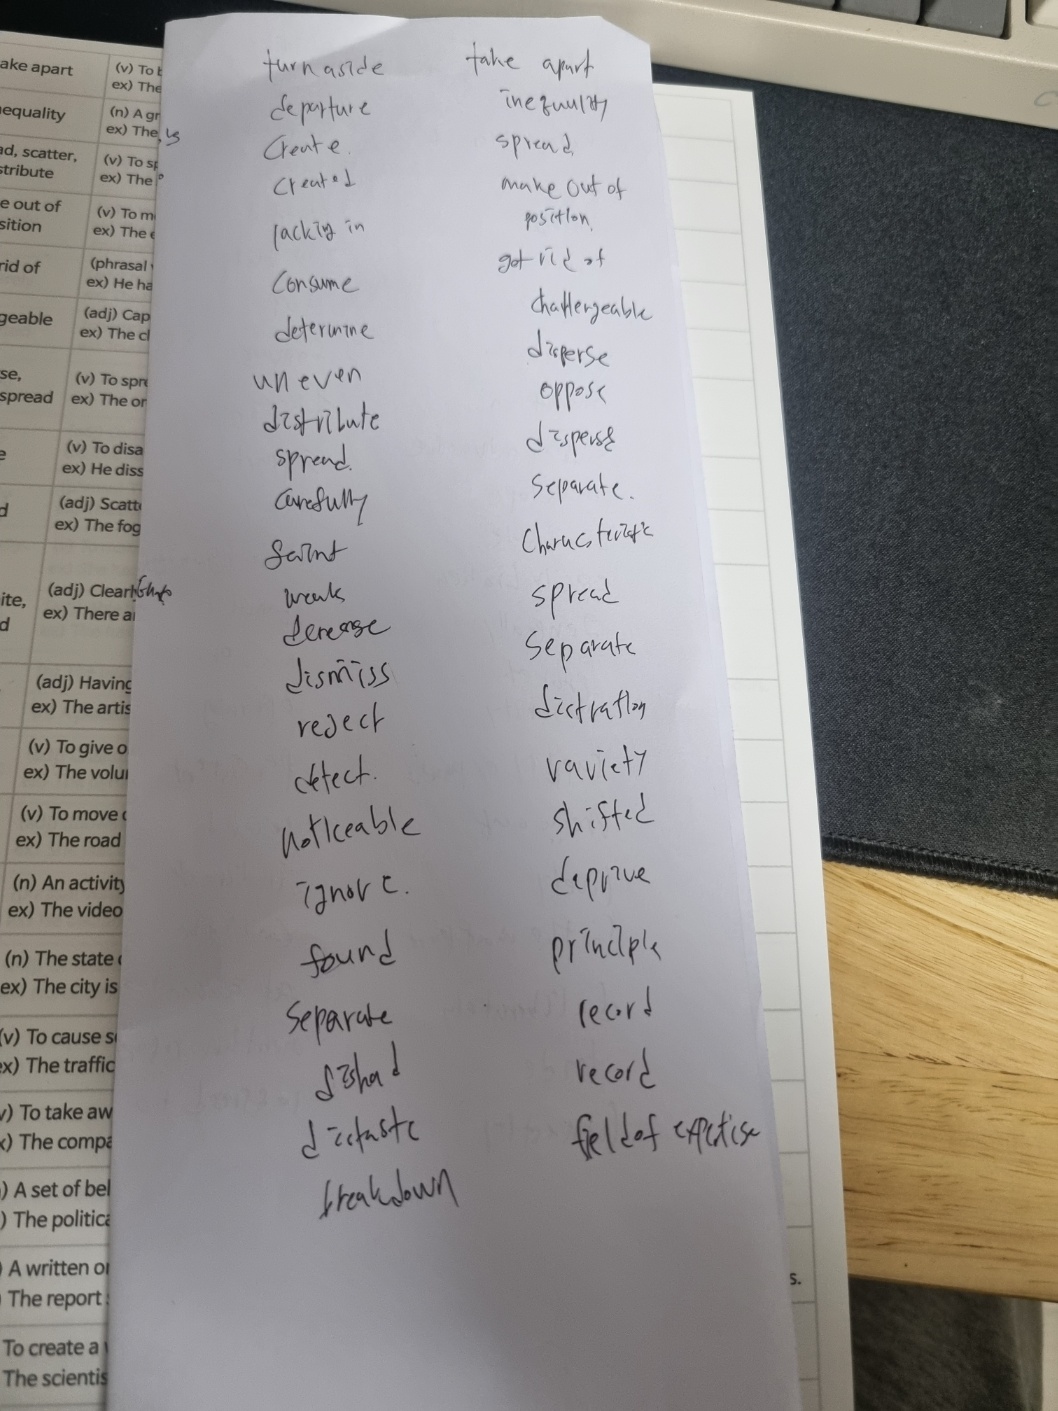 turn aside
departure
Create.
Created
lacking in
Consume
determine
uneven
distribute
spread.
carefully
faint
weak
derease
dismiss
reject
detect.
noticeable
ignore.
found
separate
distaste
breakdown
take apart
inequality
spread
make out of
position
got rid of
challengeable
disperse
oppose
disperse
separate.
characteristic
spread
separate
variety
shifted
deprive
principle
record
record
field of expetise
ake apart
equality
ad, scatter,
stribute
e out of
sition
rid of
geable
se,
spread
ite,
(v) To
ex) The
(n) A gr
ex) The
(v) To sp
ex) The
(v) To m
ex) The
(phrasal
ex) He ha
(adj) Cap
ex) The cl
(v) To spre
ex) The or
(v) To disa
ex) He diss
(adj) Scatt
ex) The fog
(adj) Clear
ex) There a
(adj) Having
ex) The artis
(v) To give o
ex) The volu
(v) To move
ex) The road
(n) An activity
ex) The video
(n) The state
ex) The city is
(v) To cause s
ex) The traffic
) To take aw
) The compa
) A set of bel
) The politica
A written or
The report
To create a
The scientis
s.